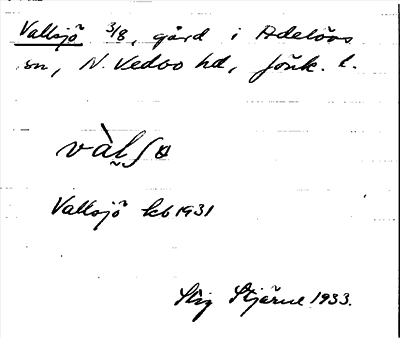 Vallsjö 3/8, gård i Adelövs
sn, N. Vedbo hd, Jönk. l.
vàl̬ʃɵ
Vallsjö kb 1931
Stig Stjärne 1933.